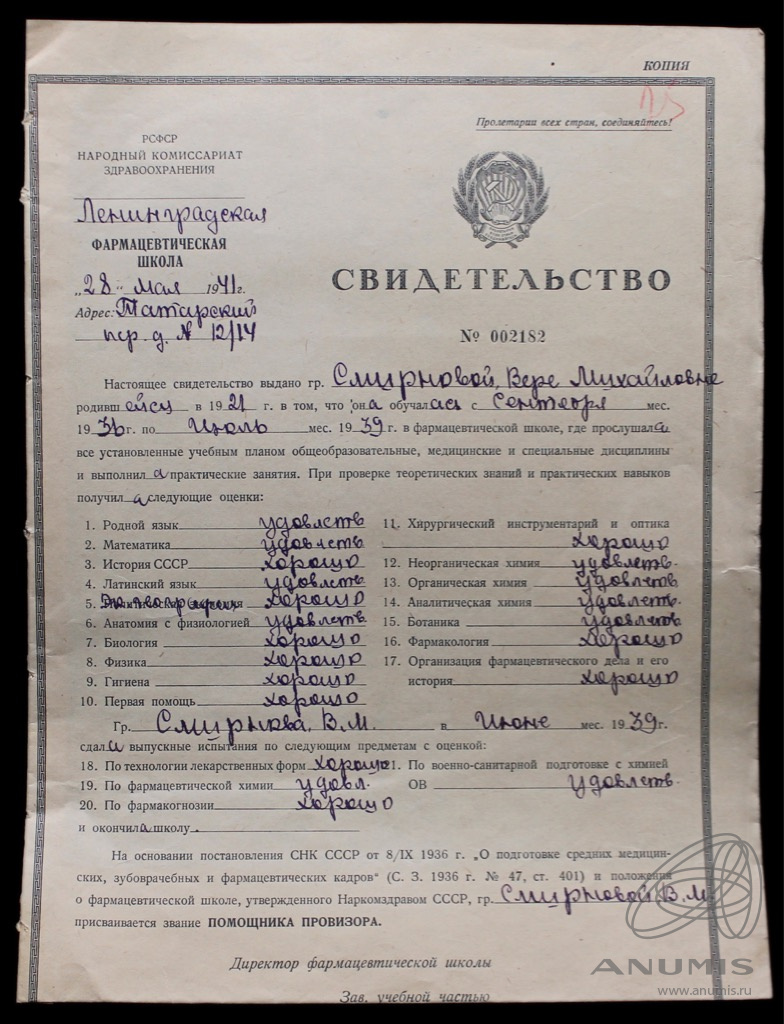 КОПИЯ
Пролетарии всех стран, соединяйтесь!
РСФСР
НАРОДНЫЙ КОМИССАРИАТ
ЗДРАВООХРАНЕНИЯ
Ленинградская
ФАРМАЦЕВТИЧЕСКАЯ
ШКОЛА
„28" мая 1941г.
Адрес: Татарский
пер. д. № 12/14
СВИДЕТЕЛЬСТВО
№ 002182
Настоящее свидетельство выдано гр. Смирновой, Вере Михайловне
родившейся в 1921 г. в том, что она обучалась с Сентября мес.
1936г. по Июль мес. 1939 г. в фармацевтической школе, где прослушала
все установленные учебным планом общеобразовательные, медицинские и специальные дисциплины
и выполнила практические занятия. При проверке теоретических знаний и практических навыков
получила следующие оценки:
1. Родной язык удовлетв
2. Математика удовлетв
3. История СССР хорошо
4. Латинский язык удовлетв
5. хорошо
6. Анатомия с физиологией удовлетв.
7. Биология хорошо
8. Физика хорошо
9. Гигиена хорошо
10. Первая помощь хорошо
11. Хирургический инструментарий и оптика
хорошо
12. Неорганическая химия удовлетв.
13. Органическая химия удовлетв
14. Аналитическая химия удовлетв.
15. Ботаника удовлетв
16. Фармакология хорошо
17. Организация фармацевтического дела и его
история хорошо
Гр. Смирнова, В.М. в Июне мес. 1939г.
сдала выпускные испытания по следующим предметам с оценкой:
18. По технологии лекарственных форм хорошо
19. По фармацевтической химии удовл.
20. По фармакогнозии хорошо
21. По военно-санитарной подготовке с химией
ОВ удовлетв.
и окончила школу.
На основании постановления СНК СССР от 8/IX 1936 г. „О подготовке средних медицин-
ских, зубоврачебных и фармацевтических кадров" (С. З. 1936 г. № 47, ст. 401) и положения
о фармацевтической школе, утвержденного Наркомздравом СССР, гр. Смирновой В.М.
присваивается звание ПОМОЩНИКА ПРОВИЗОРА.
Директор фармацевтической школы
Зав. учебной частью
ANUMIS
www.anumis.ru